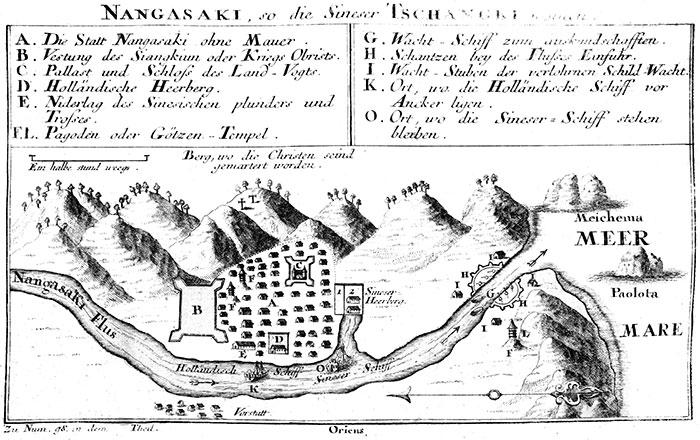 NANGASAKI, so die Sineser TSCHANGKI
A. Die Statt Nangasaki ohne Mauer.
B. Vestung des Siangkum oder Kriegs Obrists.
C. Pallast und Schloss des Land-Vogts.
D. Holländische Heerberg.
E. Niderlag des Sinesischen plunders und
Trosses.
F.L. Pagoden oder Götzen-Tempel.
G. Wacht-Schiff zum auskundschafften.
H. Schantzen bey des Flusses Einfuhr.
I. Wacht-Stuben der verlohrnen Schild-Wacht
K. Ort, wo die Holländische Schiff vor
Ancker ligen.
O. Ort, wo die Sineser-Schiff stehen
bleiben.
Ein halbe stund weegs.
Berg, wo die Christen seind
gemartert worden.
Meichema
MEER
Paolota
MARE
Nangasaki Flus
B
C
F
F
A
D
E
1 2
Sineser
Heerberg.
H
I
G
H
H
I
I
I
L
F
Holländisch Schiff
K
O
Sineser Schiff
Vorstatt
Zu Num. 98. in dem Theil.
Oriens